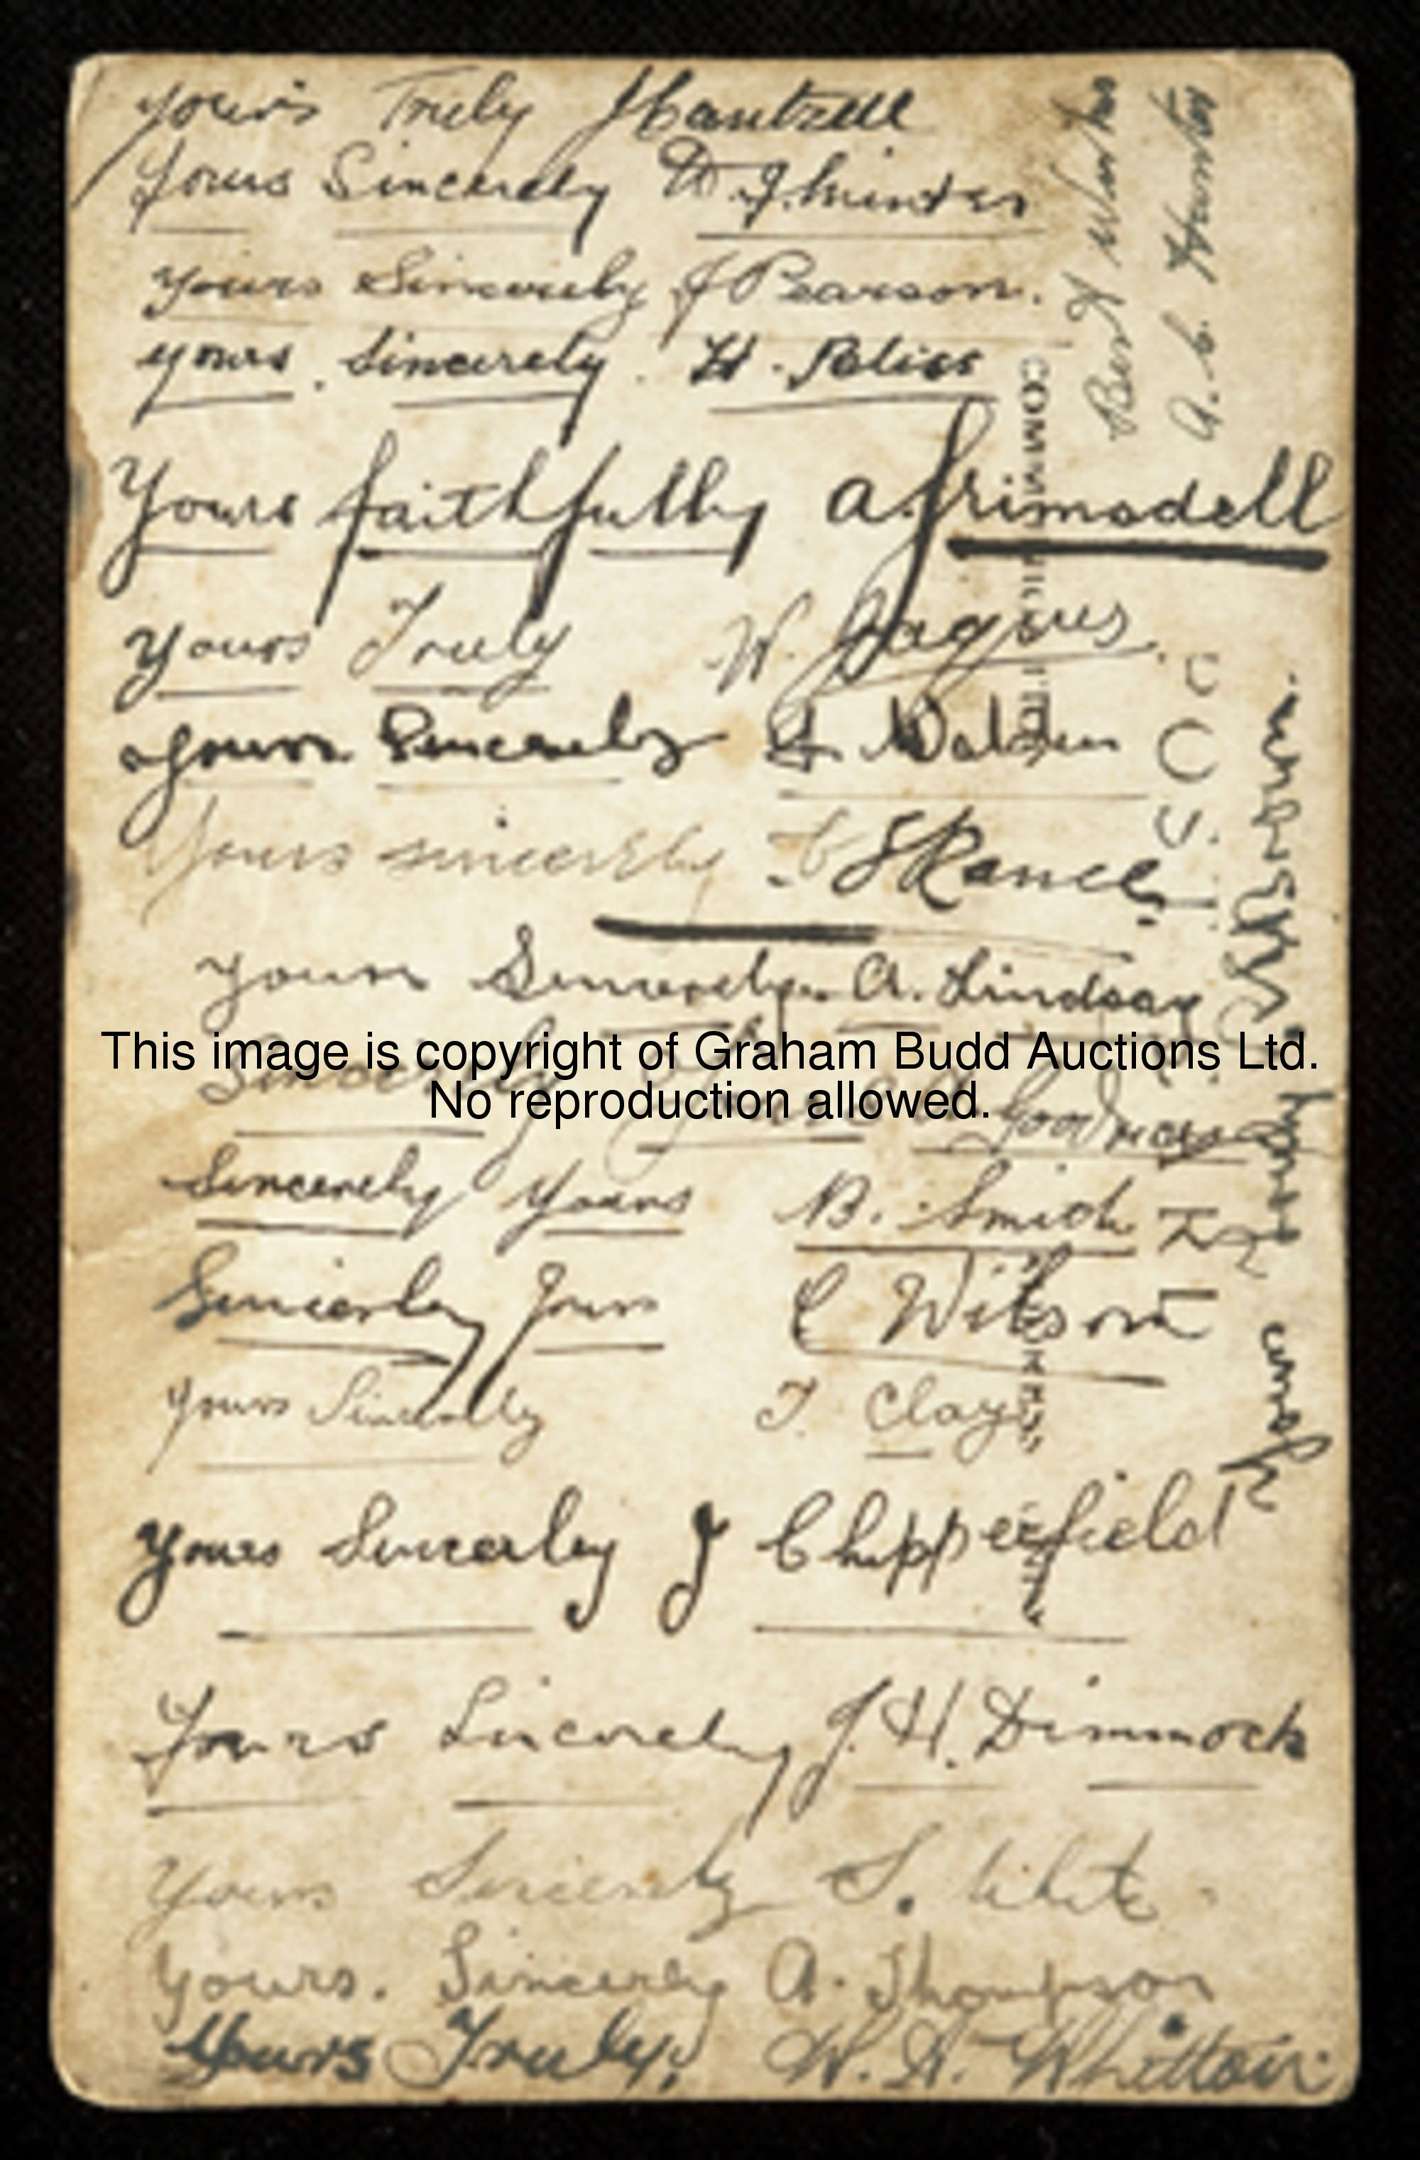 Yours Truly J Cantrell
Yours Sincerely W. J. Minter
Yours Sincerely J Pearson.
yours Sincerely. H. Bliss
Yours faithfully A. Grimsdell
Yours Truly W. Jaques
Yours Sincerely F. Walden
Yours sincerely C S Rance
Yours Sincerely A. Lindsay
This image is copyright of Graham Budd Auctions Ltd.
No reproduction allowed.
Sincerely Yours B. Smith
Sincerley Yours C Wilson
Yours Sincerely T. Clay
Yours Sincerley J Chipperfield
Yours Sincerely J. H. Dimmock
Yours Sincerely S. White
Yours. Sincerely A. Thompson
Yours Truly,
Best Wishes
Yours